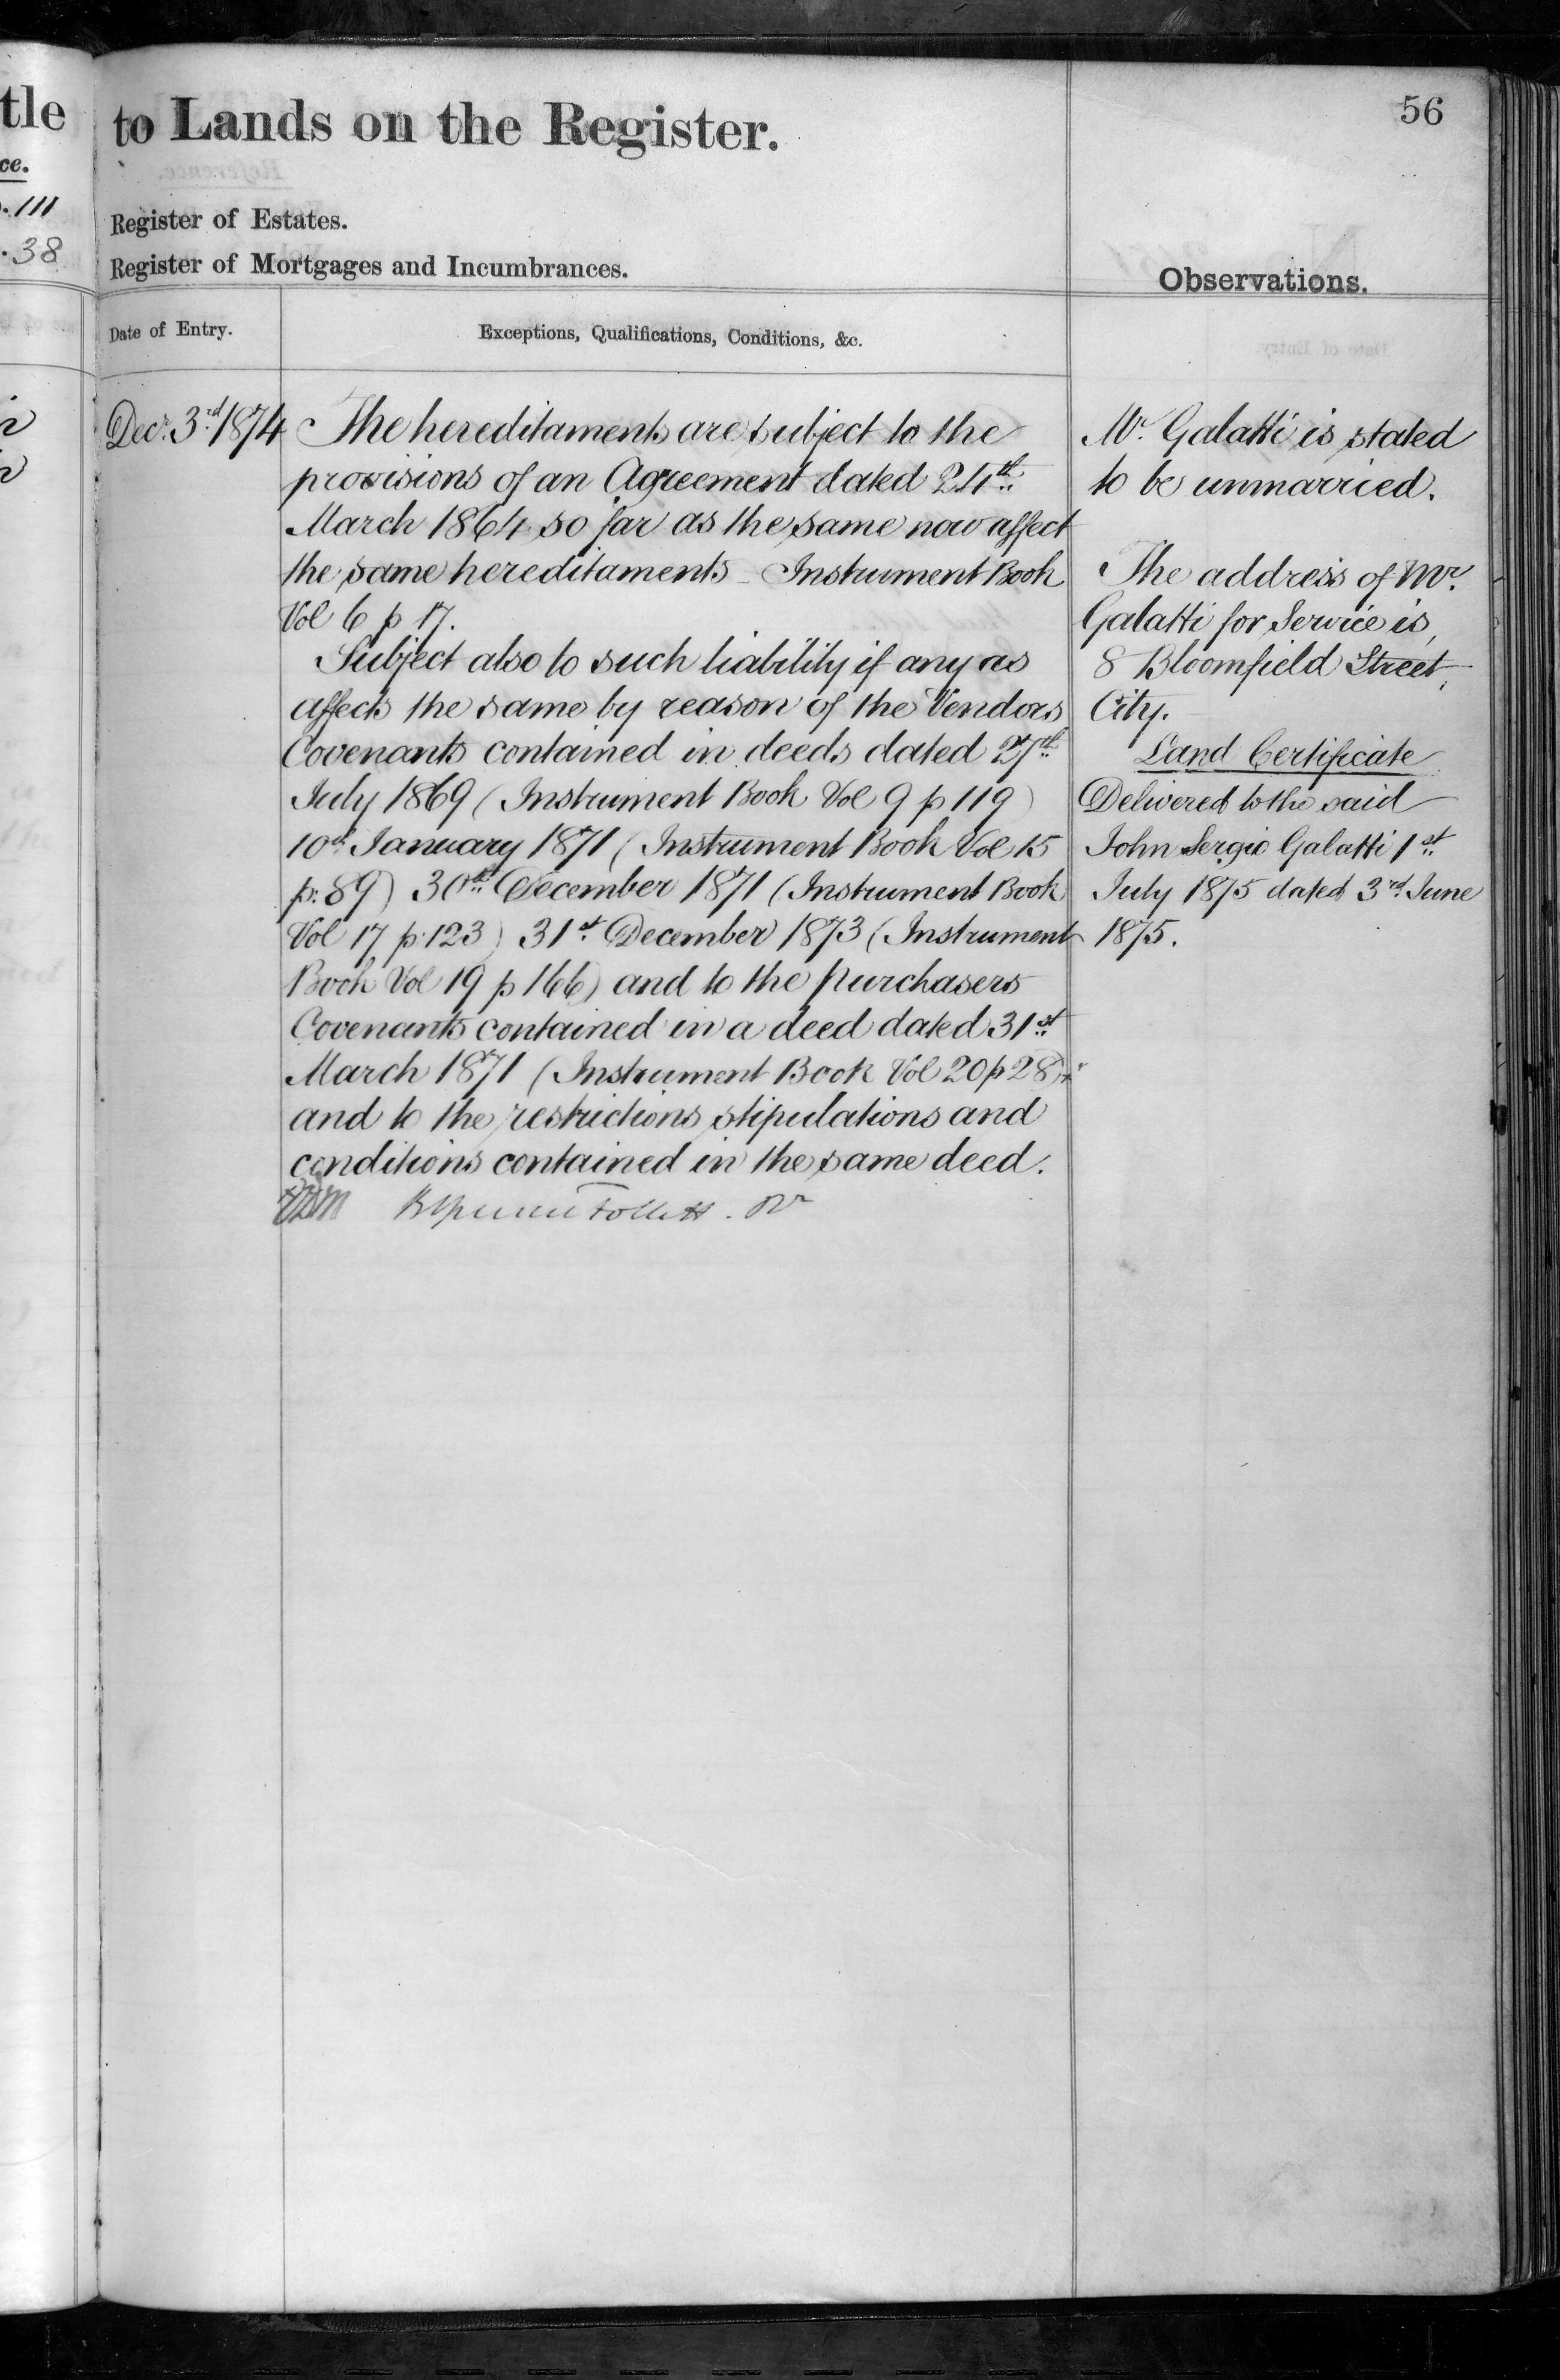 tle
ce.
p. 111
. 38
to Lands on the Register.
56
Register of Estates.
Register of Mortgages and Incumbrances.
Observations.
Date of Entry.
Exceptions, Qualifications, Conditions, &c.
Decr. 3rd 1874
The hereditaments are subject to the
provisions of an Agreement dated 24th
March 1864 so far as the same now affect
the same hereditaments - Instrument Book
Vol 6 p 17.
Subject also to such liability if any as
affects the same by reason of the Vendors
Covenants contained in deeds dated 27th
July 1869 (Instrument Book Vol 9 p 119)
10th January 1871 (Instrument Book Vol 15
p: 89) 30th December 1871 (Instrument Book
Vol 17 p. 123) 31st December 1873 (Instrument
Book Vol 19 p 166) and to the purchasers
Covenants contained in a deed dated 31st
March 1871 (Instrument Book Vol 20 p 28)
and to the restrictions stipulations and
conditions contained in the same deed.
Follett.
Mr. Galatti is stated
to be unmarried.
The address of Mr.
Galatti for Service is,
8 Bloomfield Street,
City.
Land Certificate
Delivered to the said
John Sergio Galatti 1st
July 1875 dated 3rd June
1875.